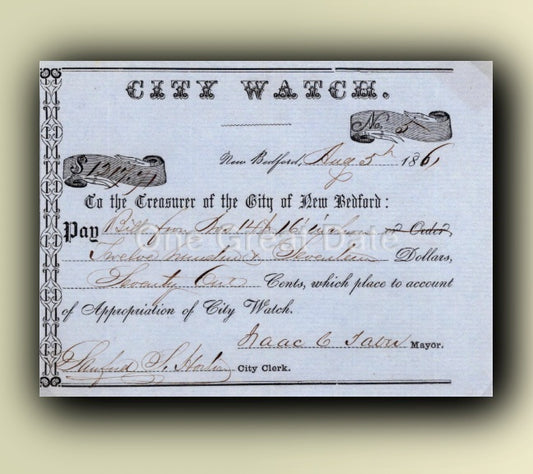 CITY WATCH.
No. 5
New Bedford, Aug 5th 1861
$1217.71
To the Treasurer of the City of New Bedford:
Pay Bills from No 1 to 16 inclusive or Order
One Great Date
Twelve hundred & Seventeen Dollars,
Seventy One Cents, which place to account
of Appropriation of City Watch.
Isaac C Taber Mayor.
Sanford S. Horton City Clerk.